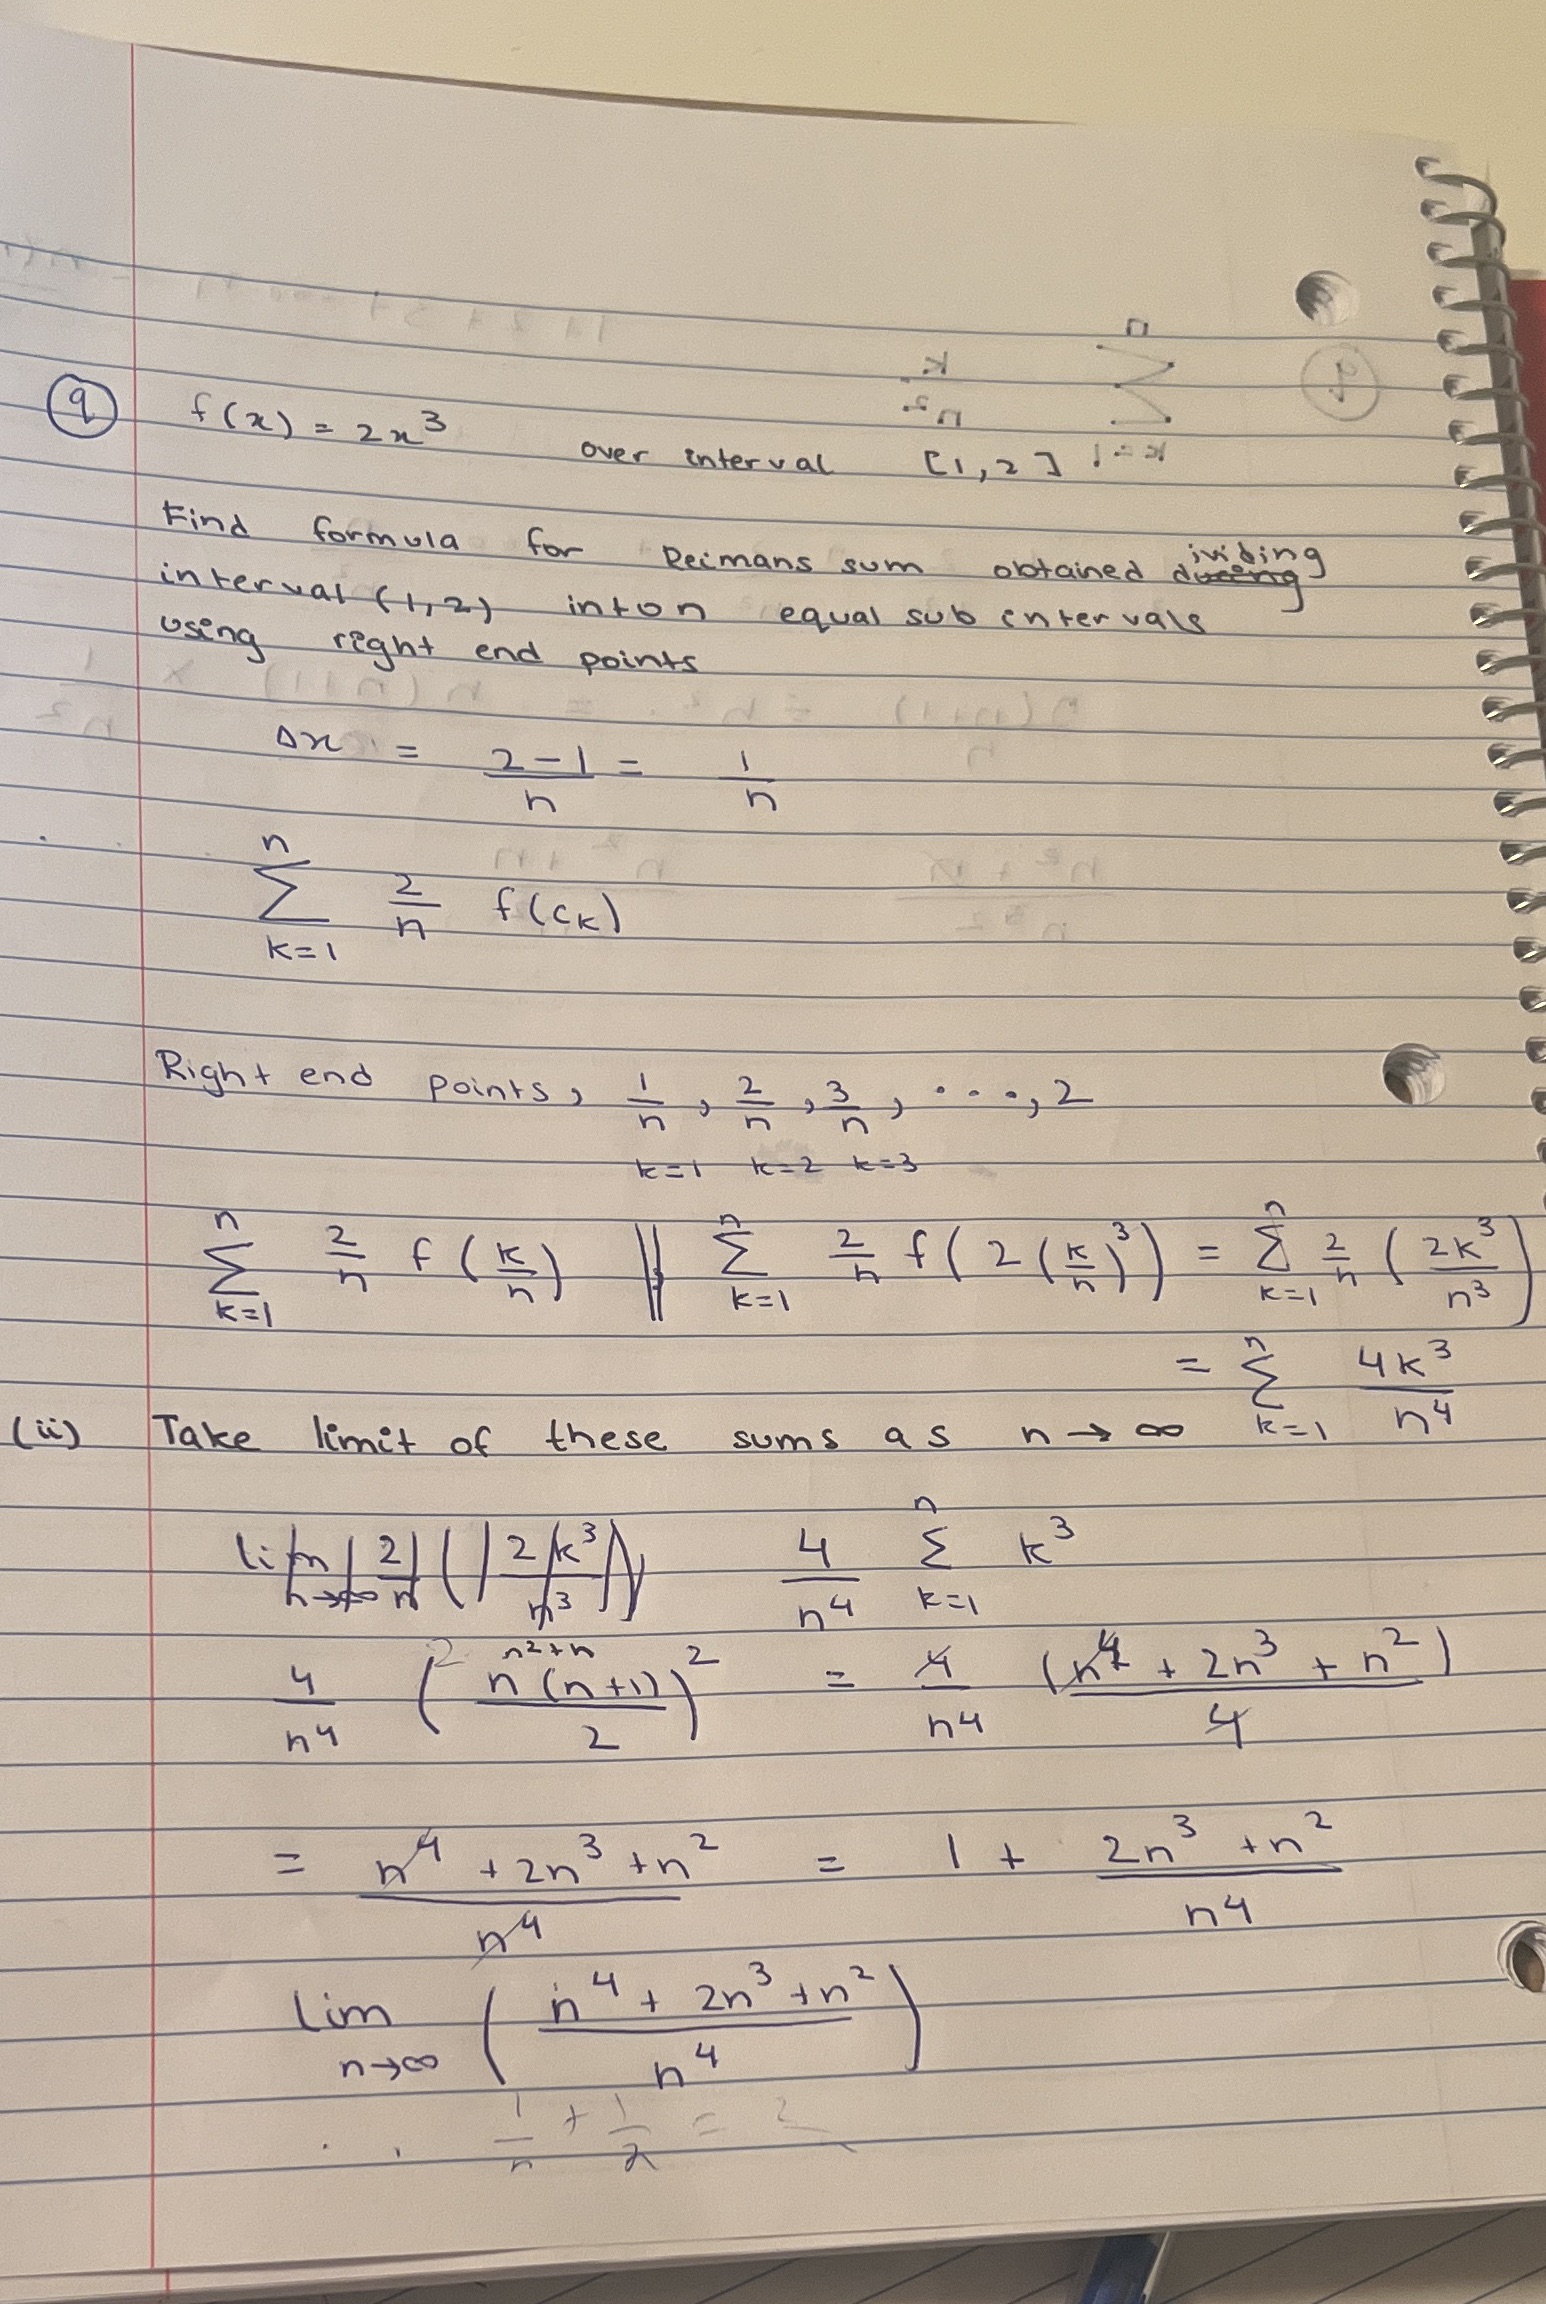 9 f(x) = 2x³ over interval [1,2]
Find formula for Reimans sum obtained dividing
interval (1,2) into n equal sub intervals
using right end points
Δx = (2-1)/n = 1/n
n
∑ 2/n f(cₖ)
k=1
Right end points, 1/n, 2/n, 3/n, ...., 2
k=1 k=2 k=3
∑ₖ₌₁ⁿ 2/n f(k/n) || ∑ₖ₌₁ⁿ 2/n f(2(k/n)³) = ∑ₖ₌₁ⁿ 2/n (2k³/n³)
= ∑ₖ₌₁ⁿ 4k³/n⁴
(ii) Take limit of these sums as n → ∞
lim n→∞ 2/n (2k³/n³) 4/n⁴ ∑ₖ₌₁ⁿ k³
n²+n
4/n⁴ (n(n+1)/2)² = 4/n⁴ (n⁴ + 2n³ + n²)/4
= (n⁴ + 2n³ + n²)/n⁴ = 1 + (2n³ + n²)/n⁴
lim n→∞ ((n⁴ + 2n³ + n²)/n⁴)